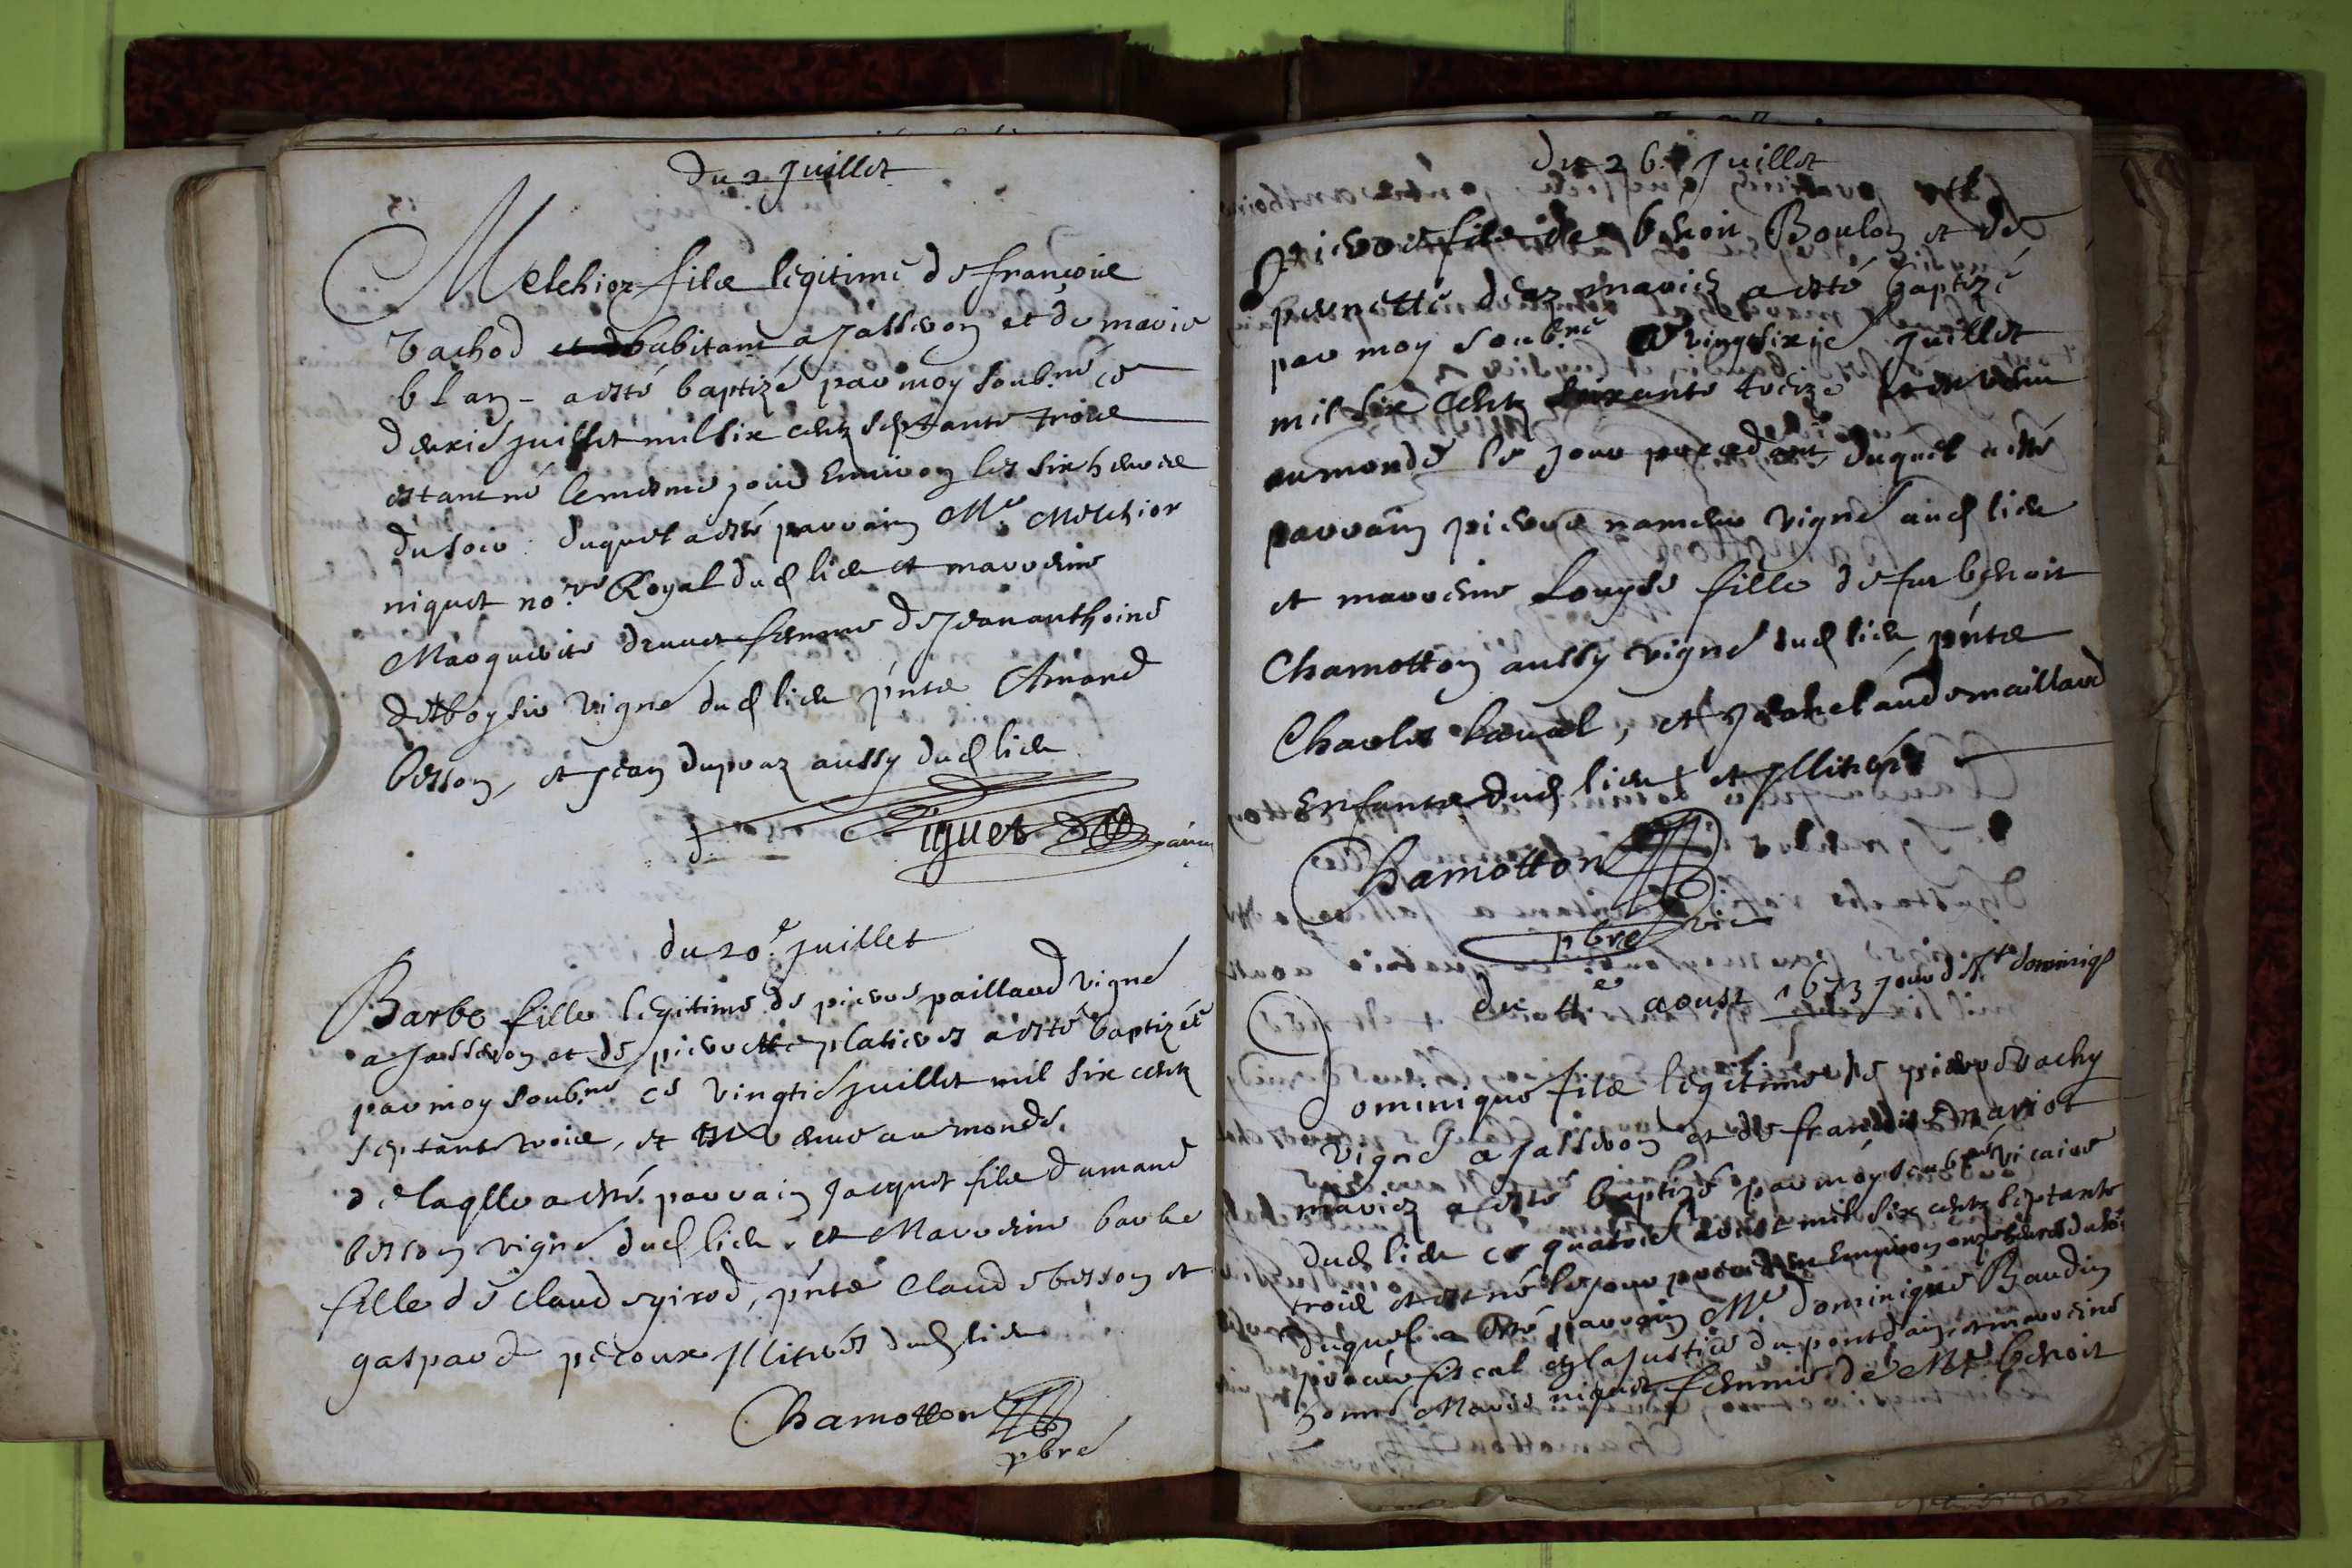 du 2 juillet
Melchior filz legitime de françois
vachod et habitant a jasseron et de marie
blan - a esté baptizé par moy soub.né ce
deuxie juillet mil six centz septante trois
estant né le mesme jour environ les six heures
du soir : duquel a esté parrain Me Melchior
niquet no.re Royal dud lieu et marreine
Marguerite druuet femme de Jean anthoine
vigne dud lieu pnts Amand
besson, et jean dupraz aussy dud lieu
Niquet parain
du 20e juillet
Barbe fille legitime de pierre paillard vigne
a jasseron et de pierrette platieres a esté baptizée
par moy soub.né ce vingtie juillet mil six centz
septante trois, et est venue au monde.
de laqlle a esté parrain jacquet filz damand
besson vigne dud lieu, et Marreine barbe
fille de claude girod, pnts claude besson et
gaspard pecoux jlliterés dud lieu
Chamotton
pbre
du 26. juillet
Pierre filz de benoit Boulon et de
pernette mariez a esté baptizé
par moy soub.né ce vingtsixie juillet
mil six centz soixante treize et est venu
au monde le jour precedent duquel a esté
parrain pierre vigne aud lieu
et marreine Louyse fille de feu benoit
Chamotton aussy vigne dud lieu pnts
Charles et jean claude maillard
enfants dud lieu et jlliterés
Chamotton
pbre vic
du 4.e aoust 1673 jour de st dominiq
Dominique filz legitime de pierre vachy
vigne a jasseron et de françoise mariot
mariez a esté baptizé par moy soubné vicaire
dud lieu ce quatrie aoust mil six centz septante
trois et est né le jour precedent environ onze heures du soir
duquel a esté parrain Me dominique Baudin
procur fiscal en la justice du pont dain, et marreine
honne Marie niquet femme de Me benoit